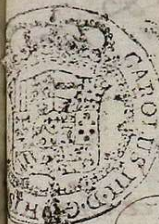 CAROLUS III D G HI